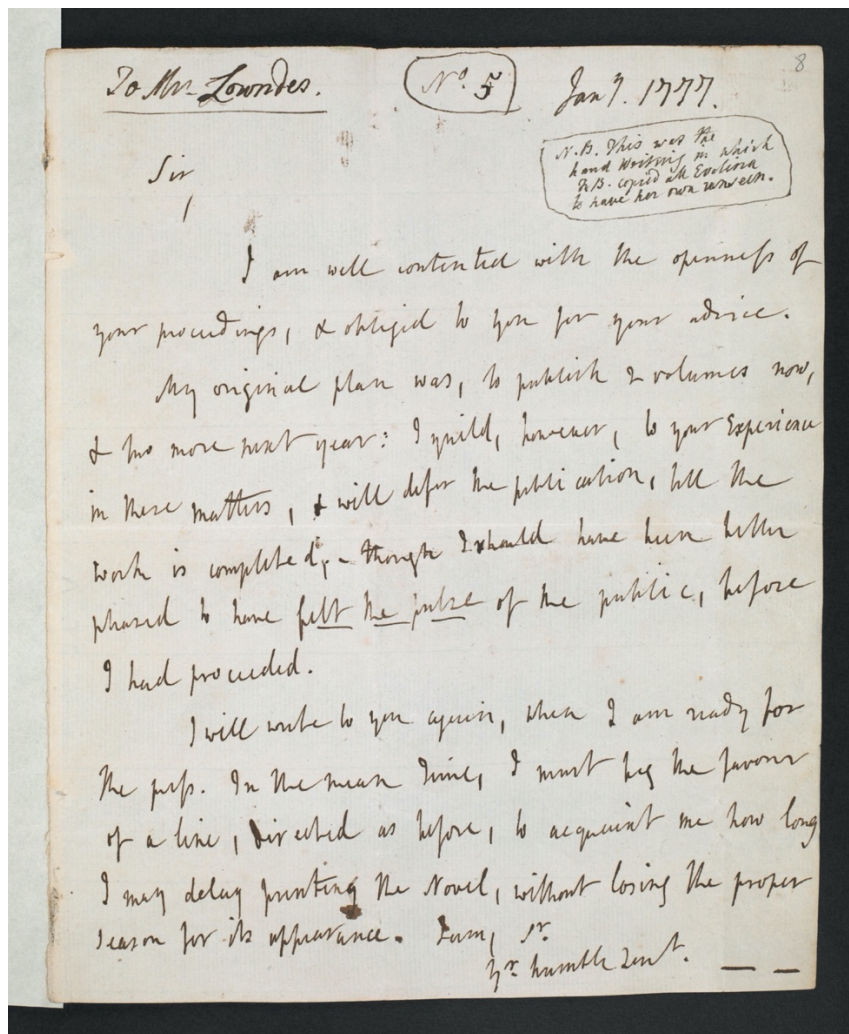 8
To Mr. Lowndes.
No. 5
Jany. 1777.
N.B. This was the
hand writing in which
F.B. copied all Evelina
to have her own unseen.
Sir,
I am well contented with the openness of
your proceedings, & obliged to you for your advice.
My original plan was, to publish 2 volumes now,
& two more next year: I yield, however, to your Experience
in these matters, & will defer the publication, till the
work is completed, - though I should have been better
pleased to have felt the pulse of the public, before
I had proceeded.
I will write to you again, when I am ready for
the press. In the mean Time, I must beg the favour
of a line, directed as before, to acquaint me how long
I may delay printing the Novel, without losing the proper
season for its appearance. I am, Sr.
Yr. humble Servt. — —